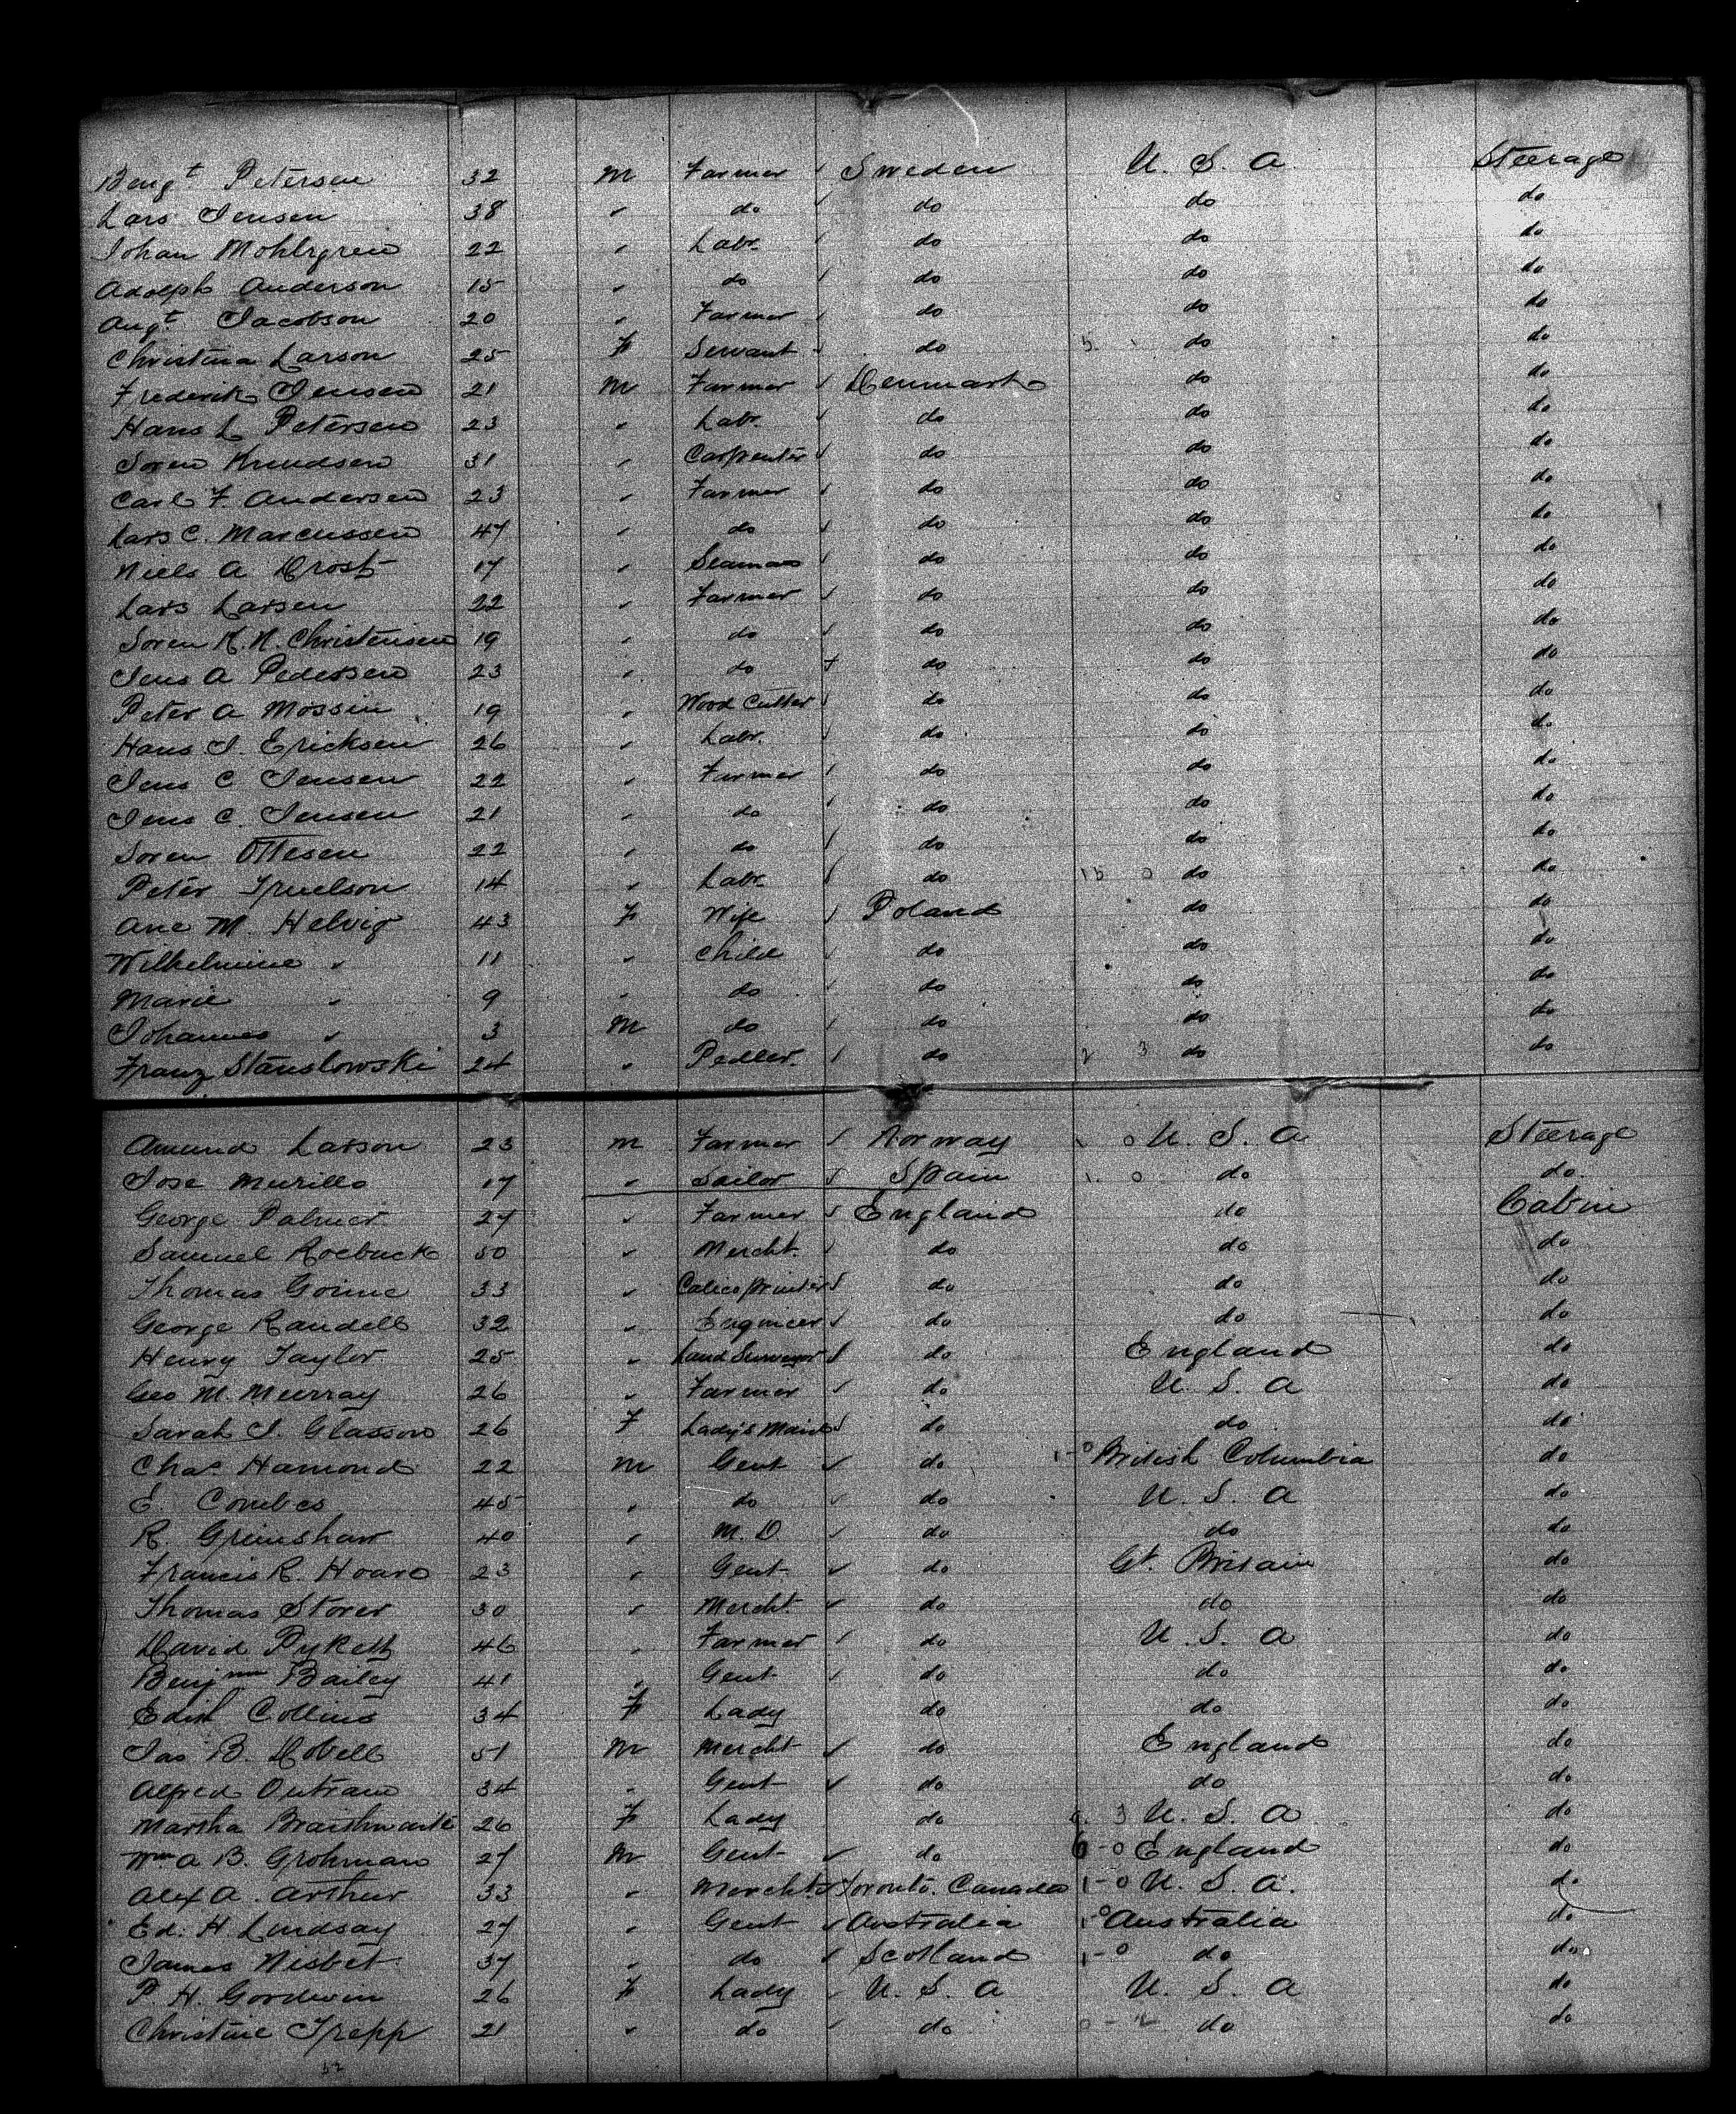 Bengt Petersen 32 M Farmer ✓ Sweden U. S. A Steerage
Lars Jensen 38 " do ✓ do do do
Johan Mohlrgren 22 " Labr. ✓ do do do
Adolph Anderson 15 " do ✓ do do do
Augt Jacobson 20 " Farmer ✓ do do do
Christina Larson 25 F Servant ✓ do 5 do do
Frederik Jensen 21 M Farmer ✓ Denmark do do
Hans L Petersen 23 " Labr. ✓ do do do
Soren Knudsen 31 " Carpenter ✓ do do do
Carl F. Andersen 23 " Farmer ✓ do do do
Lars C. Marcussen 47 " do ✓ do do do
Niels A Drost 17 " Seaman ✓ do do do
Lars Larsen 22 " Farmer ✓ do do do
Soren K. N. Christensen 19 " do ✓ do do do
Jens A Pedersen 23 " do ✓ do do do
Peter A Mossin 19 " Wood Cutter ✓ do do do
Hans J. Ericksen 26 " Labr. ✓ do do do
Jens C Jensen 22 " Farmer ✓ do do do
Jens C. Jensen 21 " do ✓ do do do
Soren Ottesen 22 " do ✓ do do do
Peter Truelson 14 " Labr. ✓ do 15 0 do do
Ane M. Helvig 43 F Wife ✓ Poland do do
Wilhelmine " 11 " Child ✓ do do do
Marie " 9 " do ✓ do do do
Johannes " 3 M do ✓ do do do
Franz Stanslowski 24 " Pedler. ✓ do 2 3 do do
Amund Larson 23 M Farmer ✓ Norway 1 0 U. S. A Steerage
Jose Murillo 17 " Sailor ✓ Spain 1 0 do do
George Palmer 27 " Farmer ✓ England do Cabin
Samuel Roebuck 50 " Mercht. ✓ do do do
Thomas Gorine 33 " Calico Printer ✓ do do do
George Randell 32 " Engineer ✓ do do do
Henry Taylor 25 " Land Surveyor ✓ do England do
Geo M. Murray 26 " Farmer ✓ do U. S. A do
Sarah J. Glasson 26 F Lady's Maid ✓ do do do
Chas. Hamond 22 M Gent ✓ do 1-0 British Columbia do
E. Combes 45 " do ✓ do U. S. A do
R. Grimshaw 40 " M. D ✓ do do do
Francis R. Hoare 23 " Gent ✓ do Gt. Britain do
Thomas Storer 30 " Mercht. ✓ do do do
David Pykett 46 " Farmer ✓ do U. S. A do
Benjmn Bailey 41 " Gent ✓ do do do
Edith Collins 34 F Lady do do do
Jas B. Dobell 51 M Mercht ✓ do England do
Alfred Outram 34 " Gent ✓ do do do
Martha Braithwaite 26 F Lady do 3 U. S. A do
Wm A B. Grohman 27 M Gent ✓ do 6-0 England do
Alex A. Arthur 33 " Mercht. ✓ Toronto. Canada 1-0 U. S. A. do
Ed. H. Lindsay 27 " Gent ✓ Australia 1-0 Australia do
James Nisbet 37 " do ✓ Scotland 1-0 do do
P. H. Gordwin 26 F Lady ✓ U. S. A U. S. A do
Christine Trepp 21 " do ✓ do 0-2 do do
52